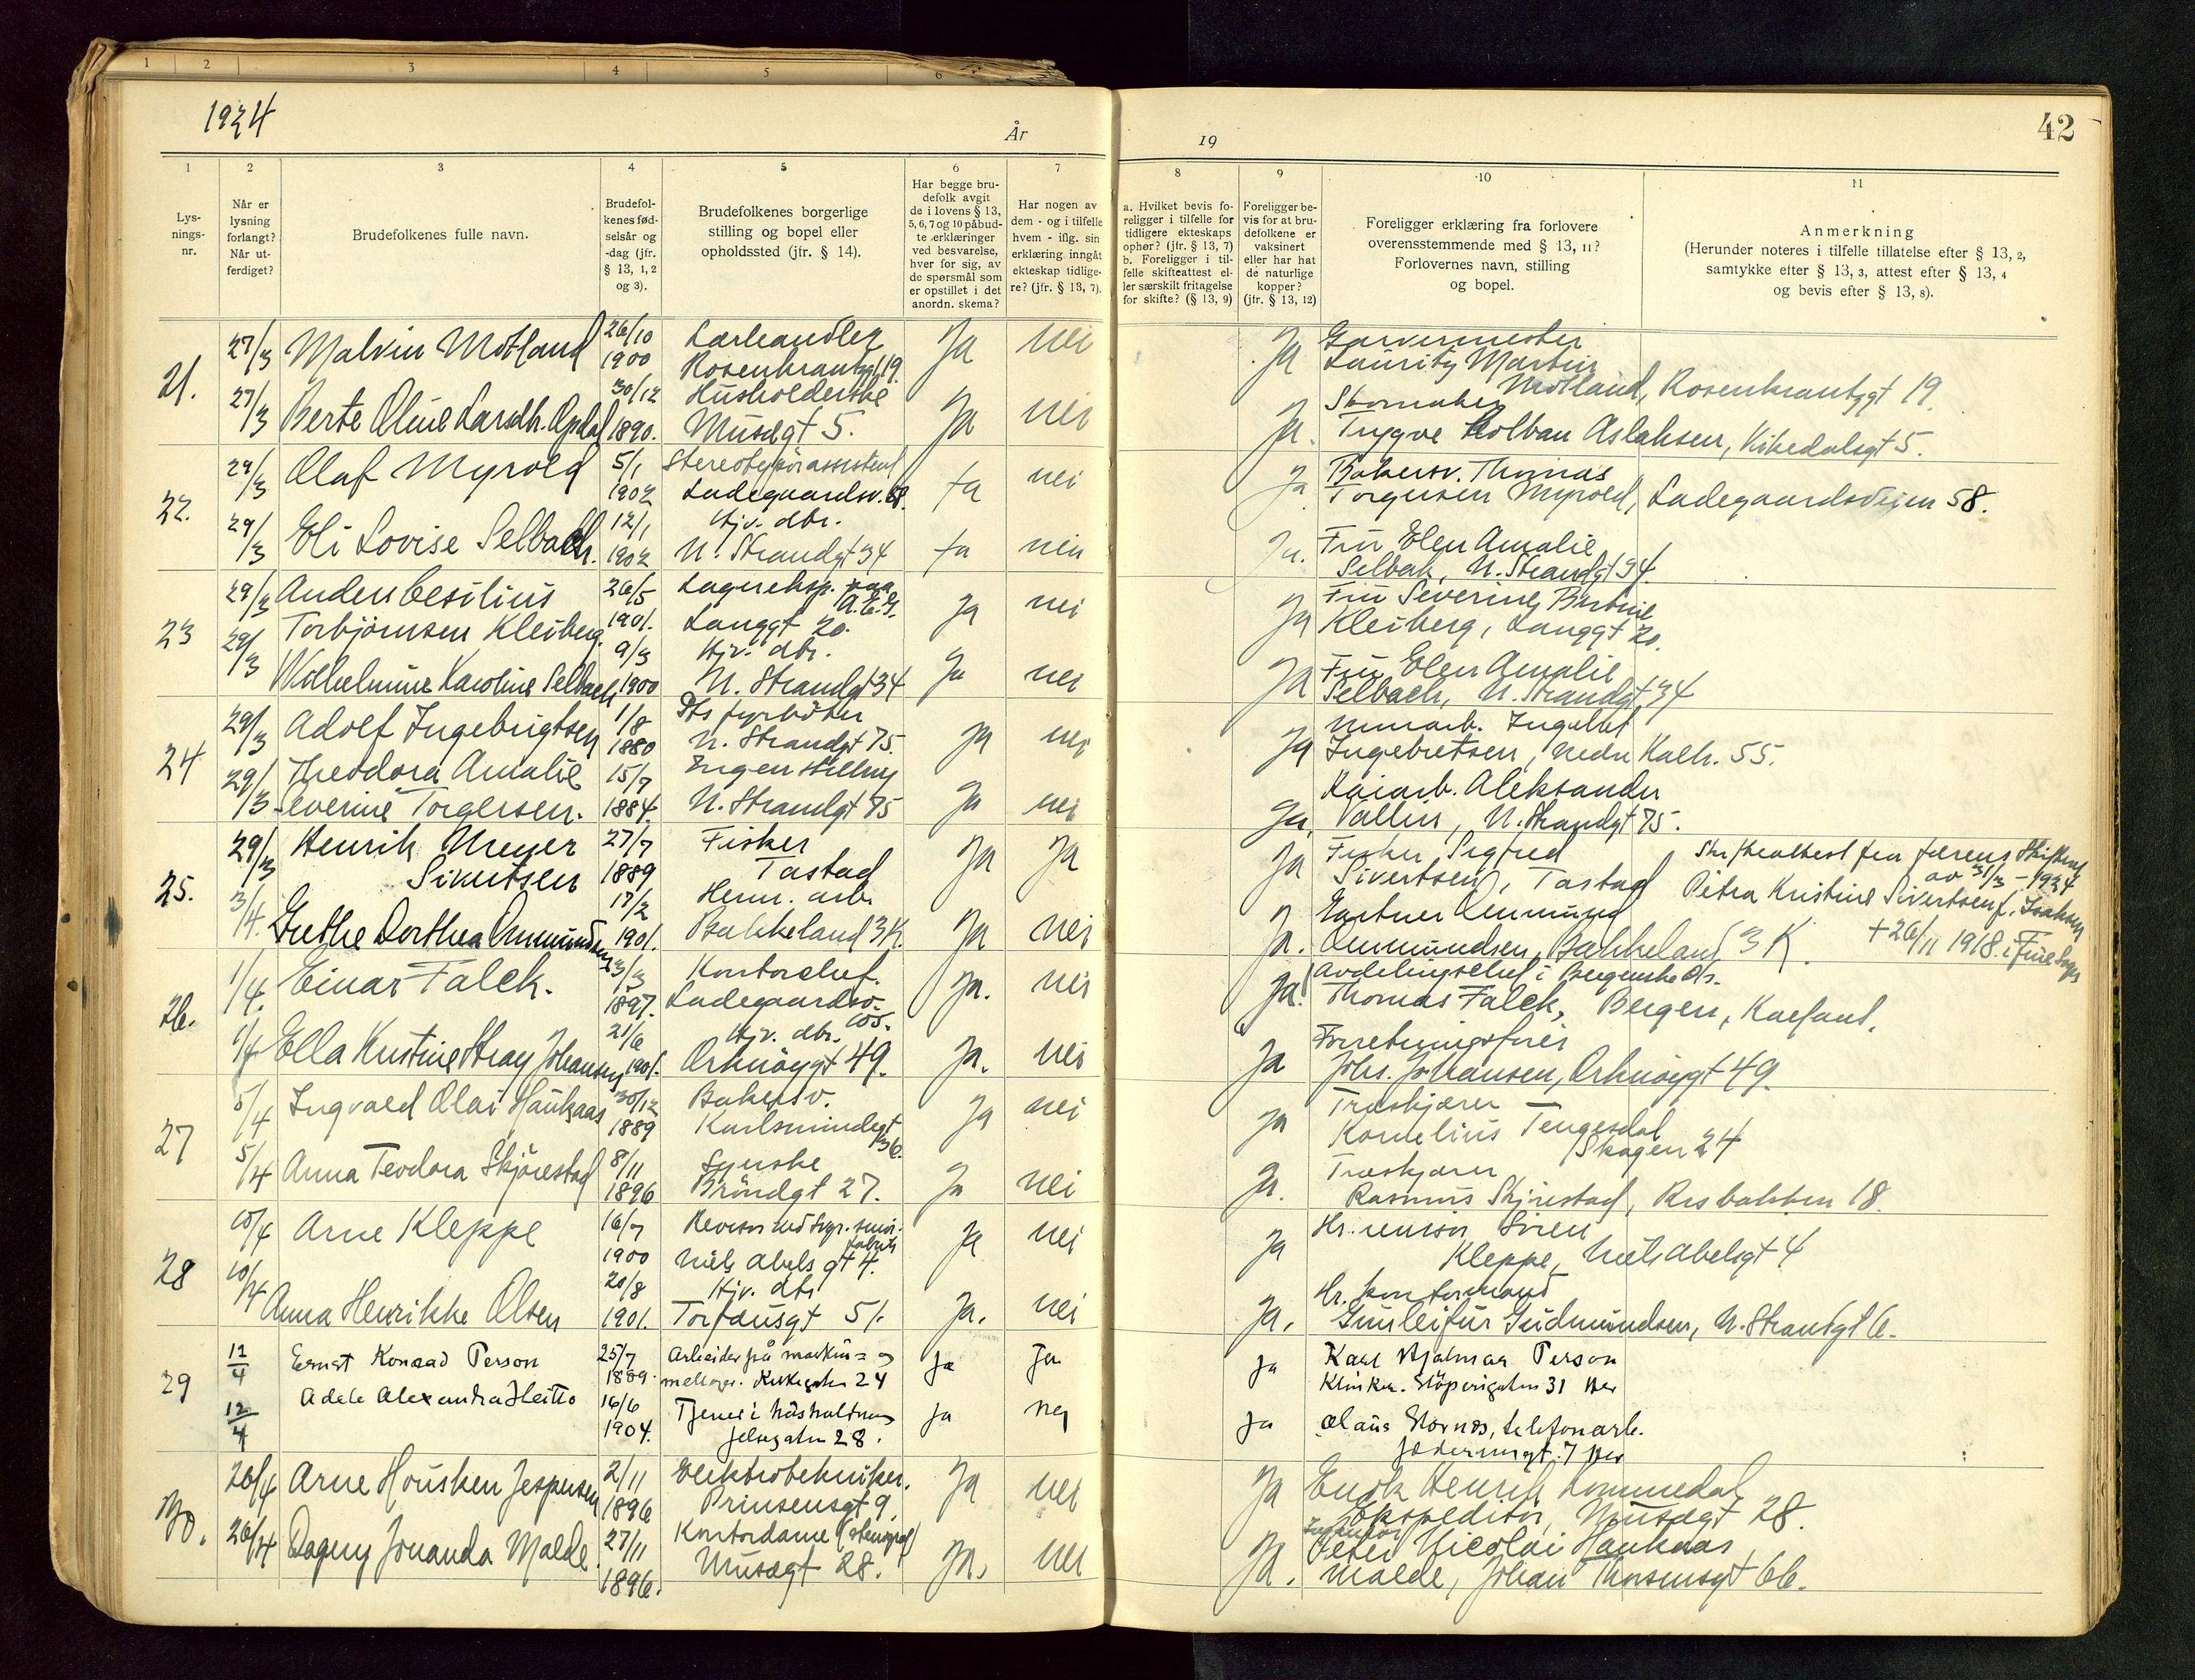 1 2 3 4 5 6
1934
År
19
42
1 2 3 4 5 6 7 8 9 10 11
Lys-
nings-
nr.
Når er
lysning
forlangt?
Når ut-
ferdiget?
Brudefolkenes fulle navn.
Brudefol-
kenes fød-
selsår og
-dag (jfr.
§ 13, 1, 2
og 3).
Brudefolkenes borgerlige
stilling og bopel eller
opholdssted (jfr. § 14).
Har begge bru-
defolk avgit
de i lovens § 13,
5, 6, 7 og 10 påbud-
te erklæringer
ved besvarelse,
hver for sig, av
de spørsmål som
er opstillet i det
anordn. skema?
Har nogen av
dem - og i tilfelle
hvem - iflg. sin
erklæring inngåt
ekteskap tidlige-
re? (jfr. § 13, 7).
a. Hvilket bevis fo-
religger i tilfelle for
tidligere ekteskaps
ophør? (jfr. § 13, 7)
b. Foreligger i til-
felle skifteattest el-
ler særskilt fritagelse
for skifte? (§ 13, 9)
Foreligger be-
vis for at bru-
defolkene er
vaksinert
eller har hat
de naturlige
kopper?
(jfr. § 13, 12)
Foreligger erklæring fra forlovere
overensstemmende med § 13, 11?
Forlovernes navn, stilling
og bopel.
Anmerkning
(Herunder noteres i tilfelle tillatelse efter § 13, 2,
samtykke efter § 13, 3, attest efter § 13, 4
og bevis efter § 13, 8).
21.
27/3 Malvin Motland 26/10 1900 Lærhandler Rosenkrantzgt 19. Ja nei
Ja Garvermester
Lauritz Martin
Motland, Rosenkrantzgt 19.
27/3 Berte Oline Larsdtr. Opdal 30/12 1890. Husholderske Musegt 5. Ja nei
Ja. Skomaker
Trygve Kolban Aslaksen, Kikedalsgt 5.
22.
29/3 Olaf Myrold 5/1 1902 Stereotypørassistent Ladegaardsv. 58. Ja nei
Ja Bakersv. Thomas
Torgersen Myrold, Ladegaardsveien 58.
29/3 Eli Lovise Selbach. 12/1 1902 Hjv. dtr. N. Strandgt 34 Ja nei
Ja. Fru Elen Amalie
Selbak, N. Strandgt 34.
23
29/3 Anders Cesilius
Torbjørnsen Kleiberg. 26/5 1901. Lagereksp. A.E.G. Langgt 20. Ja nei
Ja Fru Severine Bertine
Kleiberg, Langgt 20.
29/3 Wilhelmine Karoline Selbach 9/3 1900 Hjv. dtr. N. Strandgt 34 Ja nei
Ja Fru Elen Amalie
Selbach, N. Strandgt 34
24
29/3 Adolf Ingebrigtsen 1/8 1880 Ds fyrbøter N. Strandgt 75. Ja nei
Ja Ingebretsen, nedre Kalh. 55.
29/3 Theodora Amalie
Severine Torgersen. 15/7 1884. Ingen stilling N. Strandgt 75 Ja nei
Ja. Kaiarb. Aleksander
Vallin, N. Strandgt 75.
25.
29/3 Henrik Meyer
Sivertsen 27/7 1889 Fisker Tastad Ja Ja
Ja Fisker Sigfred
Sivertsen, Tastad
Skifteattest fra
av 31/3 - 1934
Petra Kristine Sivertsen f. Isaksen
+ 26/11 1918.
3/4. Guthe Dorthea Ommundsen 17/2 1901. Herm. arb. Bakkeland 3K. Ja nei
Ja. Gartner Ommund
Ommundsen, Bakkeland 3 K.
26.
1/4. Einar Falck. 23/3 1897. Kontorchef. Ladegaardsv. Ja. nei
Ja! Avdelingschef i Bergenske Ds.
Thomas Falck, Bergen,
1/4 Ella Kristine Stray Johansen 21/6 1901. Hjv. dtr. Orknøygt 49. Ja. nei
Ja Forretningsfører
Johs. Johansen, Orknøygt 49.
27
5/4 Ingvald Olai Haukaas 30/12 1889 Bakersv. Karlsmindegt 36. Ja nei
Ja Træskjærer
Kornelius Tengesdal
Skagen 24
5/4 Anna Teodora Skjørestad 8/11 1896 Syerske Brøndgt 27. Ja nei
Ja. Træskjærer
Rasmus Skjørestad, Risbakken 18.
28
10/4 Arne Kleppe 16/7 1900 Niels Abels gt 4. Ja nei
Ja Hr. revisor Søren
Kleppe, Niels Abelsgt 4
10/4 Anna Henrikke Olsen 20/8 1901. Hjv. dtr Torfæusgt 51. Ja. nei
Ja. Hr. kontormand
Gunleifur Gudmundsen, N. Strandgt 6.
29
12/4 Ernst Konrad Person 25/7 1889. Arbeider på maskin- og melkegen. Kirkegaten 24 Ja Ja
Ja Karl Hjalmar Person
Klinker. Støperigaten 31 Her
12/4 Adele Alexandra Heitto 16/6 1904. Tjener i husholdning Jelsagaten 28. Ja nej
Ja Olaus Stornes, telefonarb.
Jæderensgt. 7 Her
30.
26/4 Arne Housken Jespersen 2/11 1896 Elektrotekniker. Prinsensgt 9. Ja nei
Ja Enok Henrik Lommedal
Ekspeditør, Musegt 28.
26/4 Dagny Jonanda Malde. 27/11 1896. Kontordame (stenograf) Musegt 28. Ja. nei
Ja. Peter Nicolai Haukaas
Malde, Johan Thorsensgt 66.